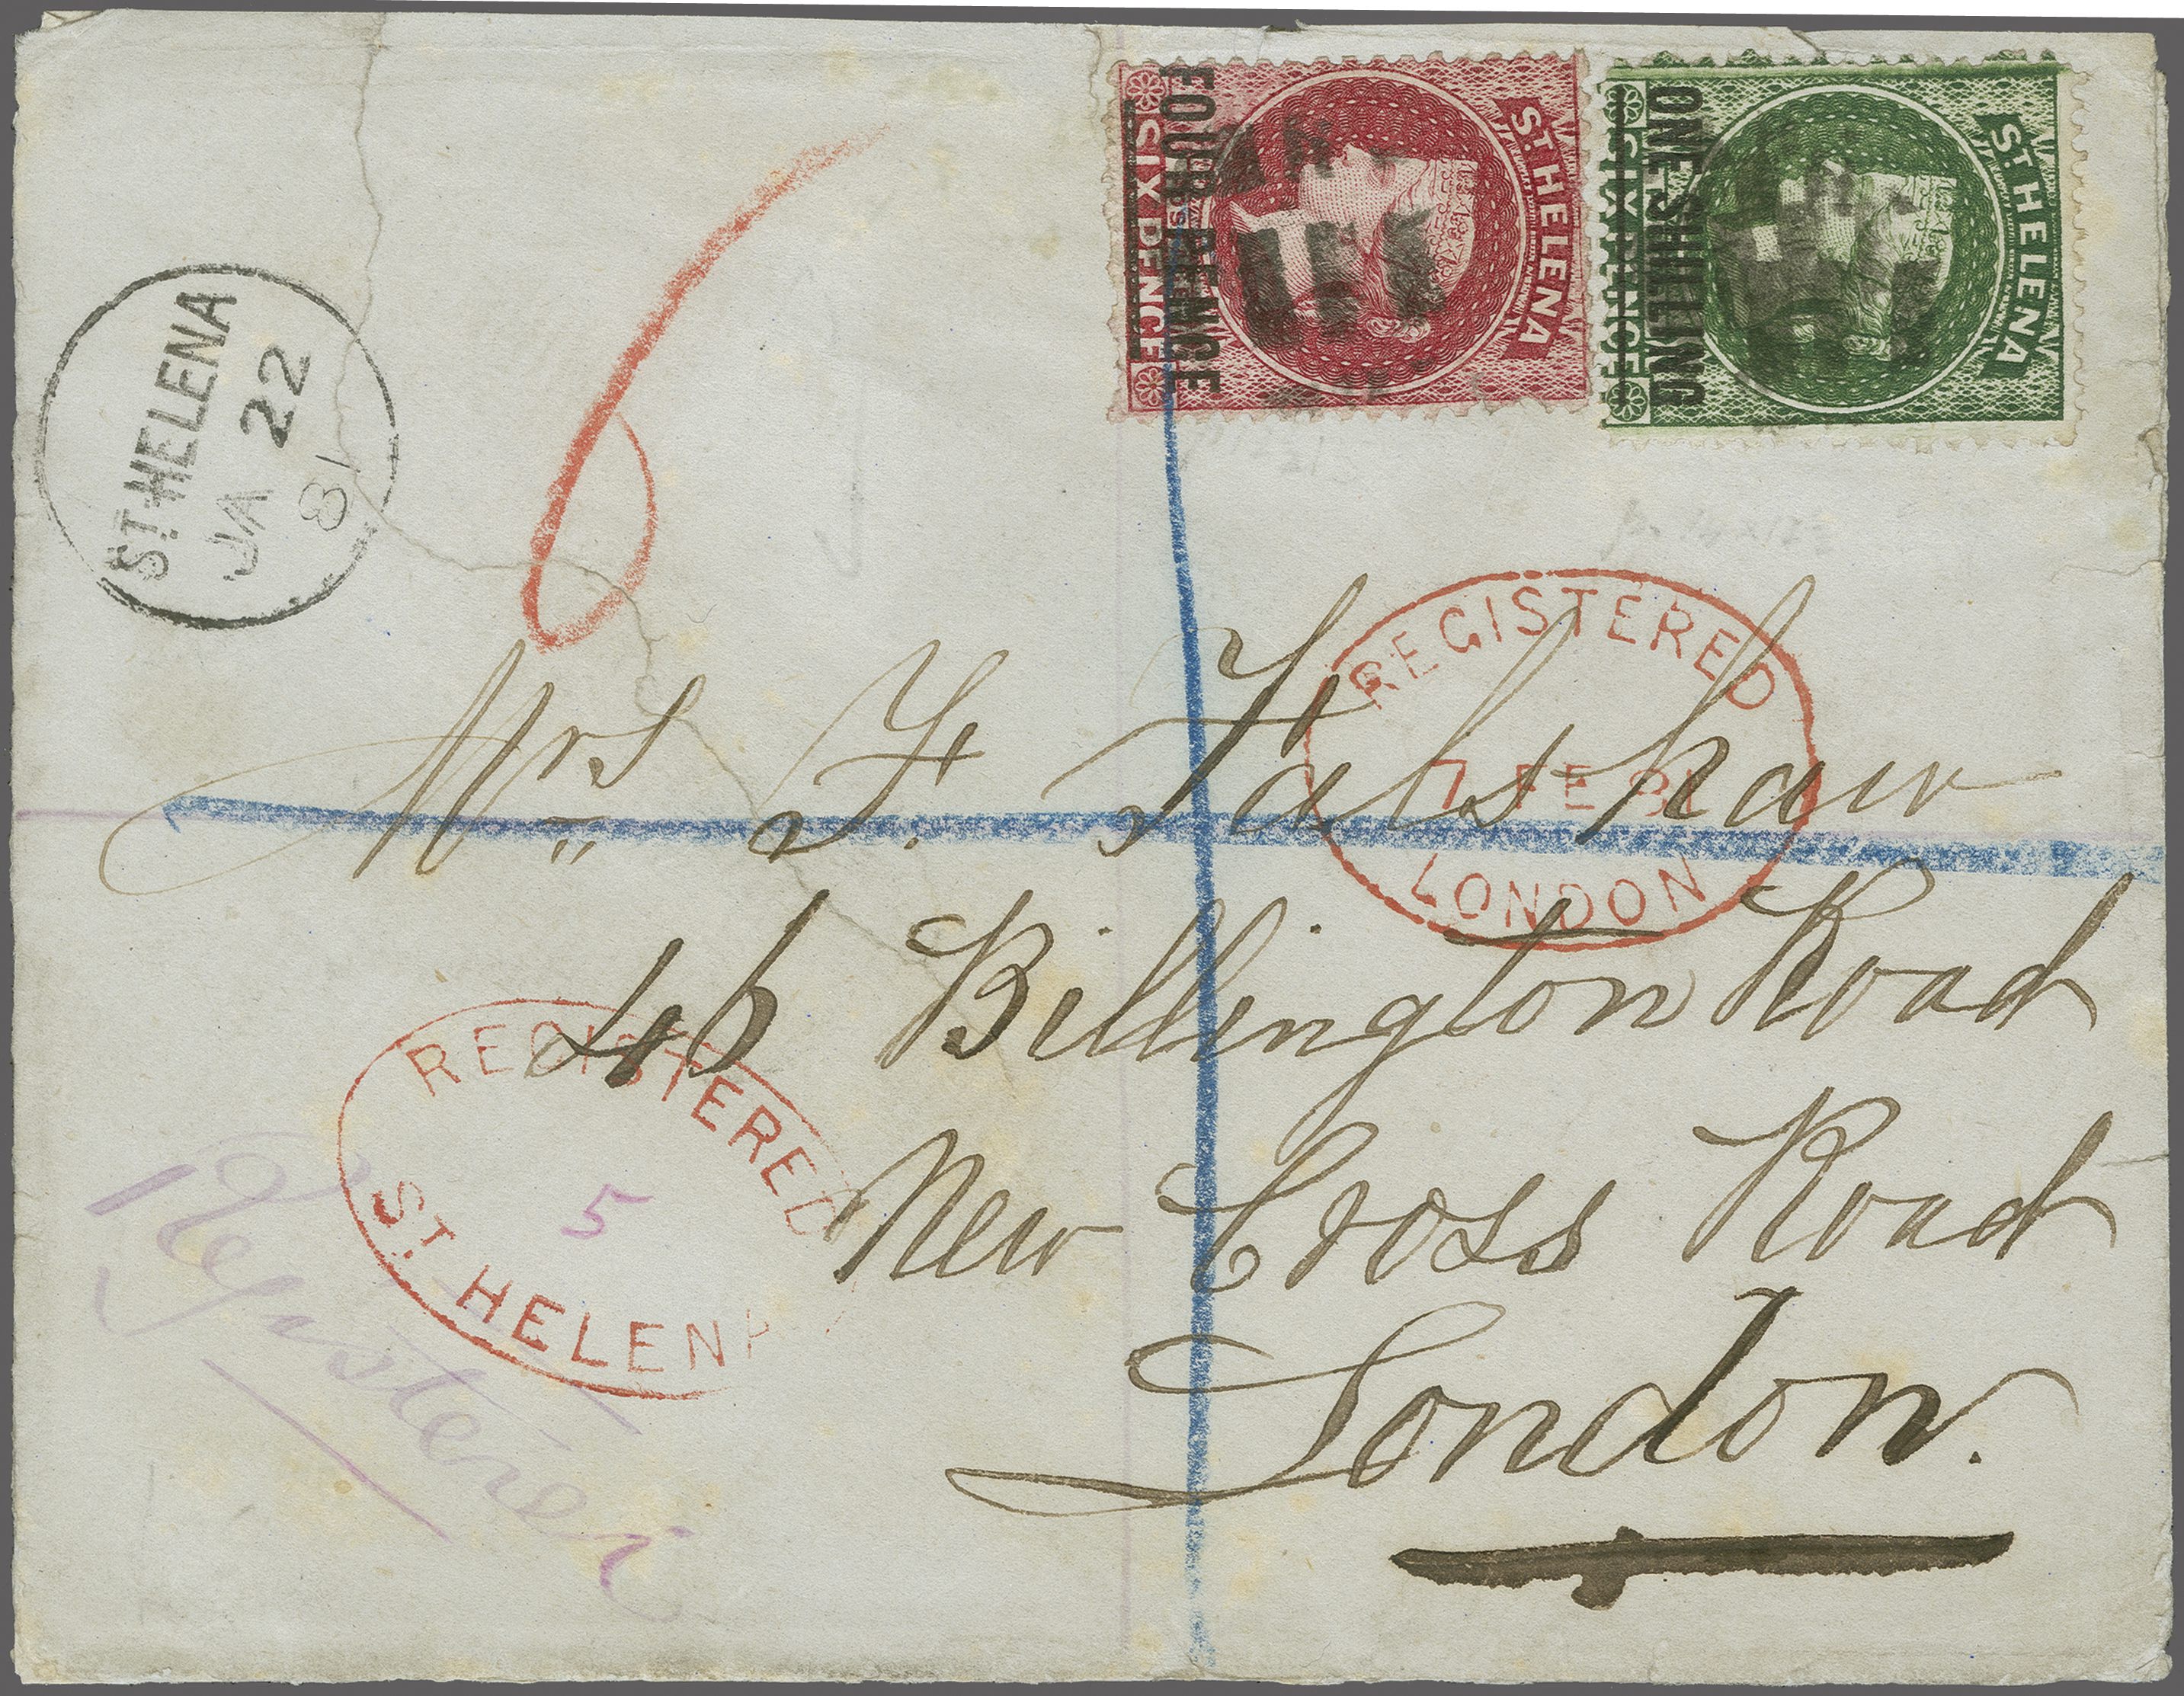 ST. HELENA
SIX PENCE
FOUR PENCE
ST. HELENA
SIX PENCE
ONE SHILLING
ST HELENA
JA 22
81
6
REGISTERED
7 FE 81
LONDON
Mrs F. Falshaw
46 Billington Road
New Cross Road
London.
REGISTERED
5
ST. HELENA
Register